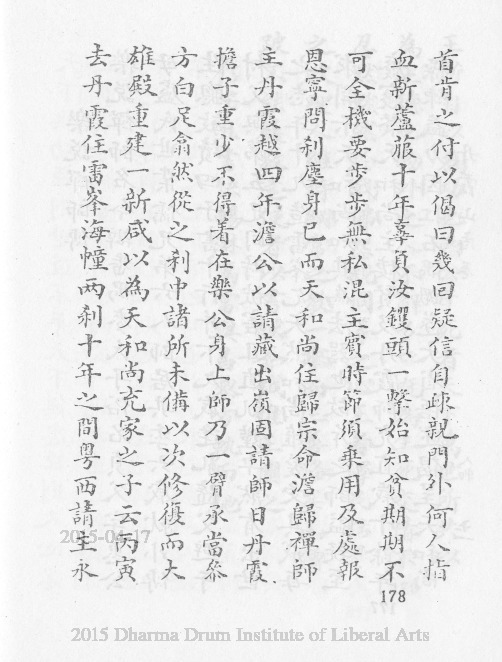 首肯之付以偈曰幾回疑信自疎親門外何人指
血新蘆菔十年辜負汝钁頭一擊始知貧期期不
可全機要步步無私混主賓時節須乘用及處報
恩寧問刹塵身已而天和尚住歸宗命澹歸禪師
主丹霞越四年澹公以請藏出嶺固請師曰丹霞
擔子重少不得著在樂公身上師乃一臂承當叅
方白足翕然從之刹中諸所未備以次修復而大
雄殿重建一新咸以為天和尚克家之子云丙寅
去丹霞住雷峯海幢兩刹十年之間粵西請主永
178
2015-04-17
2015 Dharma Drum Institute of Liberal Arts